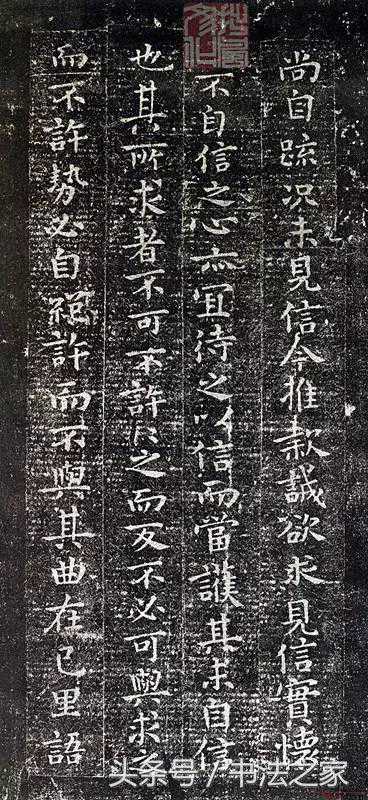 尚自疏况未見信今推款誠欲求見信實懷
不自信之心亦宜待之以信而當護其未自信
也其所求者不可不許許之而反不必可與求之
而不許勢必自絕許而不與其曲在己里語
头条号 / 书法之家